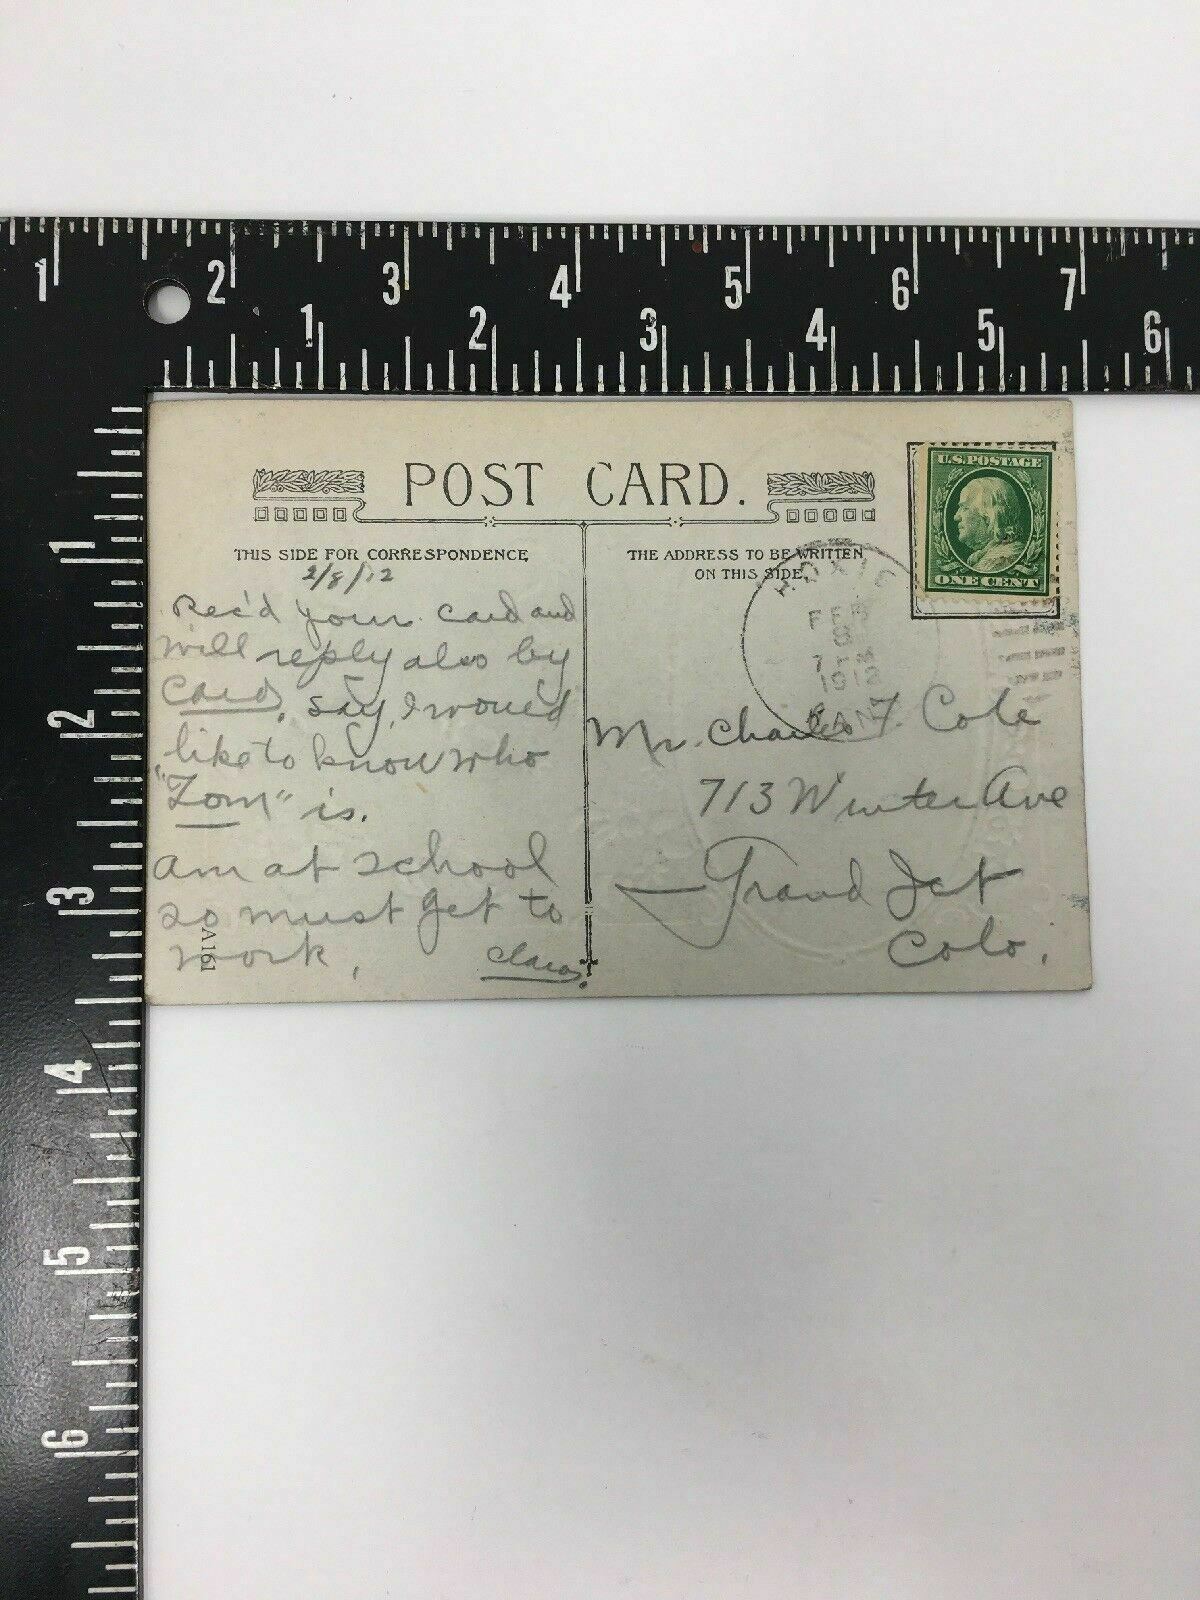 1 2 3 4 5 6 7
1 2 3 4 5 6
1
2
3
4
5
6
POST CARD.
THIS SIDE FOR CORRESPONDENCE,
2/8/12
Rec'd your card and
will reply also by
Card, say, I would
like to know who
"Tom" is.
am at school
so must get to
work,
Clara.
A161
THE ADDRESS TO BE WRITTEN
ON THIS SIDE.
U.S.POSTAGE
ONE CENT
HOXIE
FEB
KAN
Mr. Charles F. Cole
713 Winter Ave
Grand Jct
Colo.